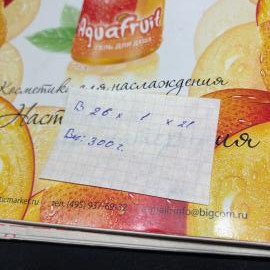 Aquafruit
ГЕЛЬ ДЛЯ ДУША
Косметика для наслаждения
В 26 x 1 x 21
Вк: 300 г.
ticmarket.ru тел. (495) 937-62-32 e-mail: info@bigcom.ru